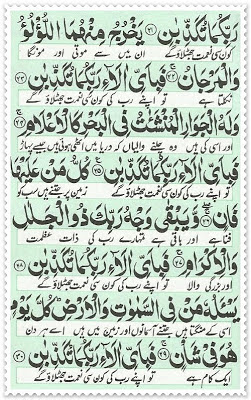 رَبِّكُمَا تُكَذِّبٰنِ ﴿۲۱﴾ یَخْرُجُ مِنْهُمَا اللُّؤْلُؤُ
کون سی نعمت جھٹلاؤ گے ان میں سے موتی اور مونگا
وَالْمَرْجَانُ ﴿۲۲﴾ فَبِاَیِّ اٰلَآءِ رَبِّكُمَا تُكَذِّبٰنِ ﴿۲۳﴾
نکلتا ہے تو اپنے رب کی کون سی نعمت جھٹلاؤ گے
وَلَهُ الْجَوَارِ الْمُنْشَئٰتُ فِی الْبَحْرِ كَالْاَعْلَامِ ﴿۲۴﴾
اور اسی کی ہیں وہ چلنے والیاں کہ دریا میں اٹھی ہوئی ہیں جیسے پہاڑ
فَبِاَیِّ اٰلَآءِ رَبِّكُمَا تُكَذِّبٰنِ ﴿۲۵﴾ كُلُّ مَنْ عَلَیْهَا
تو اپنے رب کی کون سی نعمت جھٹلاؤ گے زمین پر جتنے ہیں سب کو
فَانٍ ﴿۲۶﴾ وَّیَبْقٰی وَجْهُ رَبِّكَ ذُو الْجَلٰلِ
فنا ہے اور باقی ہے تمہارے رب کی ذات عظمت
وَالْاِكْرَامِ ﴿۲۷﴾ فَبِاَیِّ اٰلَآءِ رَبِّكُمَا تُكَذِّبٰنِ ﴿۲۸﴾
اور بزرگی والا تو اپنے رب کی کون سی نعمت جھٹلاؤ گے
یَسْـَٔلُهٗ مَنْ فِی السَّمٰوٰتِ وَالْاَرْضِ ؕ كُلَّ یَوْمٍ
اسی کے منگتا ہیں جتنے آسمانوں اور زمین میں ہیں اسے ہر دن
هُوَ فِیْ شَاْنٍ ﴿۲۹﴾ فَبِاَیِّ اٰلَآءِ رَبِّكُمَا تُكَذِّبٰنِ ﴿۳۰﴾
ایک کام ہے تو اپنے رب کی کون سی نعمت جھٹلاؤ گے